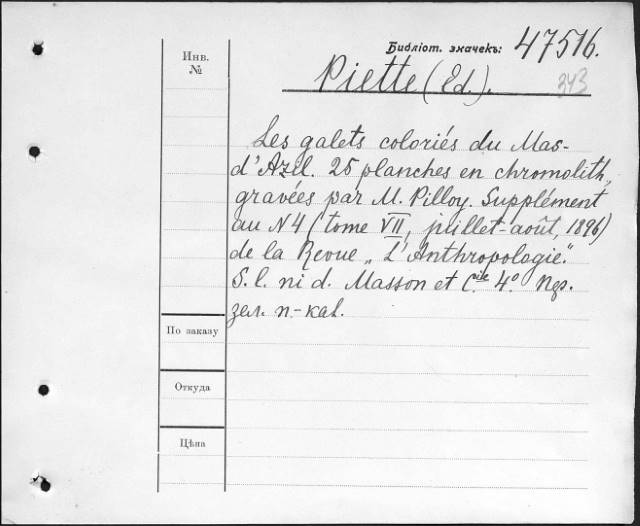 Инв.
№
Библіот. значекъ: 47516.
Piette (Ed.).
343
Les galets coloriés du Mas-
d'Azil. 25 planches en chromolith,
gravées par M. Pilloy. Supplément
au N 4 (tome VII, juillet-août, 1896)
de la Revue „L'Anthropologie."
S. l. ni d. Masson et Cie 4°.
зел. п.-кал.
По заказу
Откуда
Цѣна